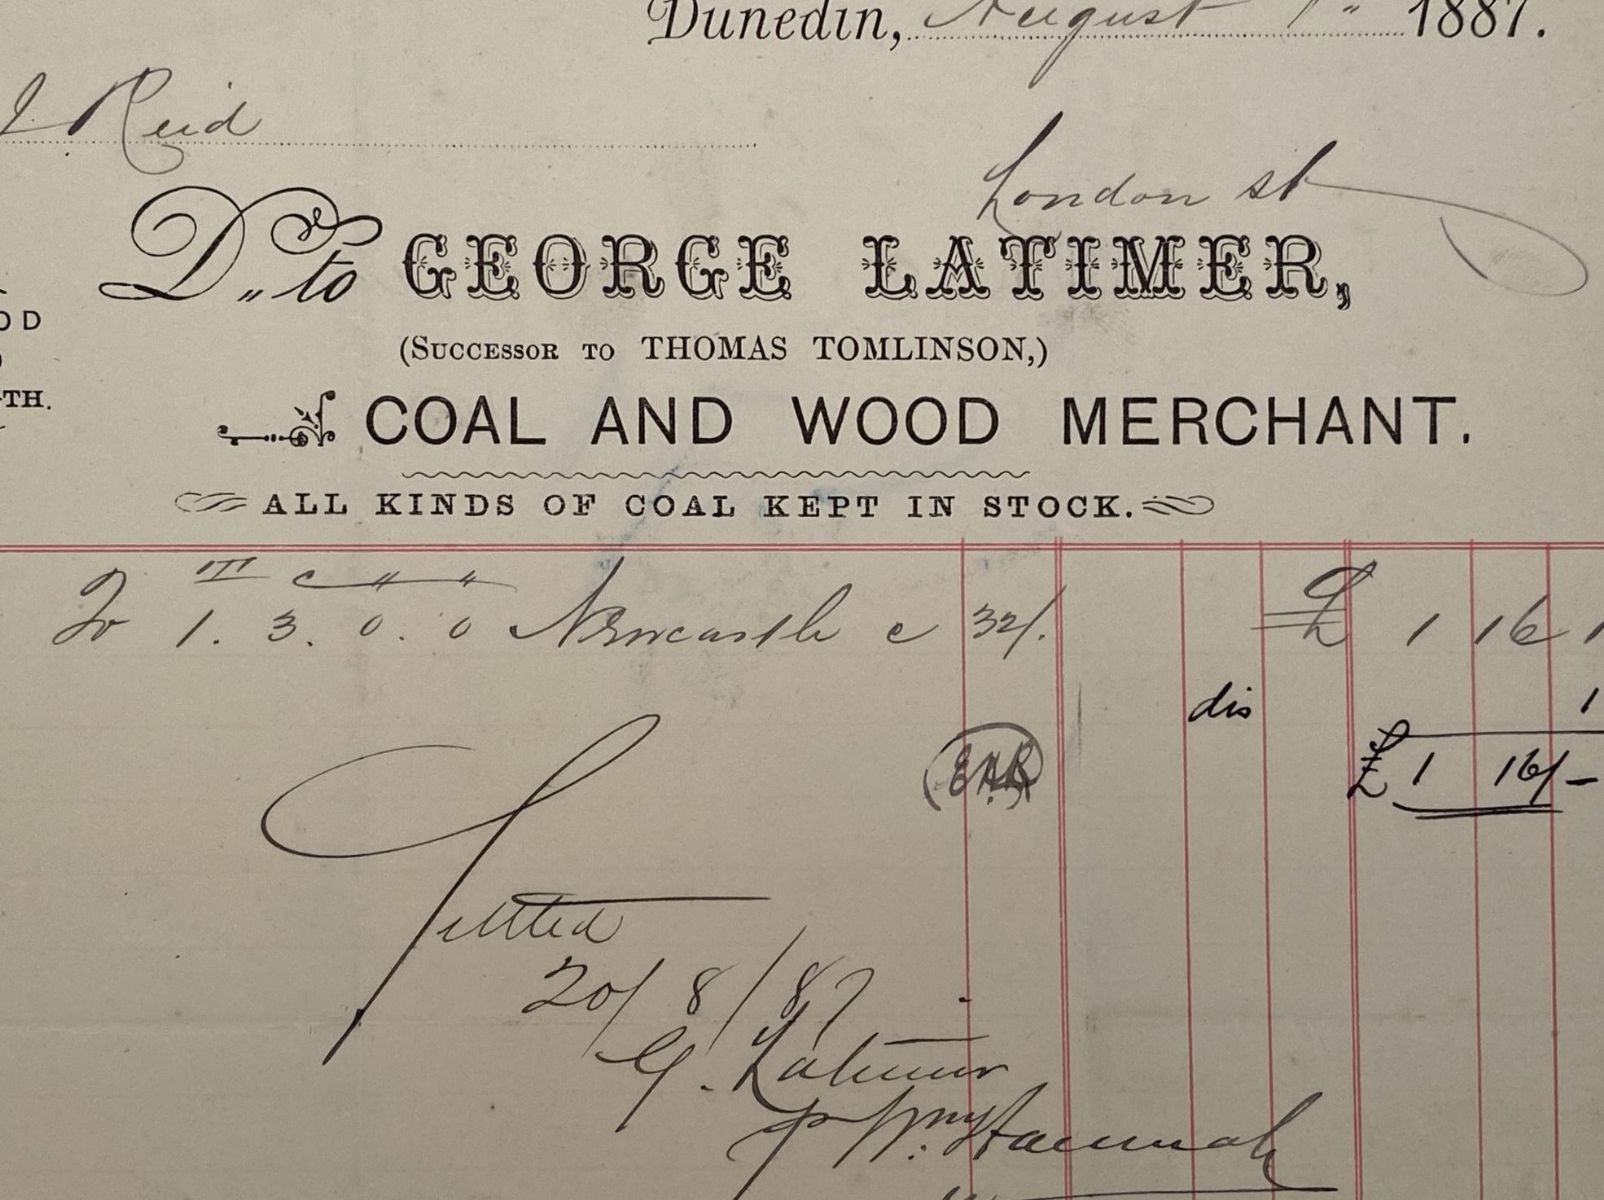 Dunedin, August 1" 1887.
J Reid
London st
Dr. to GEORGE LATIMER,
OD
(SUCCESSOR TO THOMAS TOMLINSON,)
TH.
COAL AND WOOD MERCHANT.
ALL KINDS OF COAL KEPT IN STOCK.
T c " "
To 1. 3. 0. 0 Newcastle c 32/. £ 1 16 1
dis 1
£ 1 16/-
Settled
20/8/87
G. Latimer
p Wm Hannah